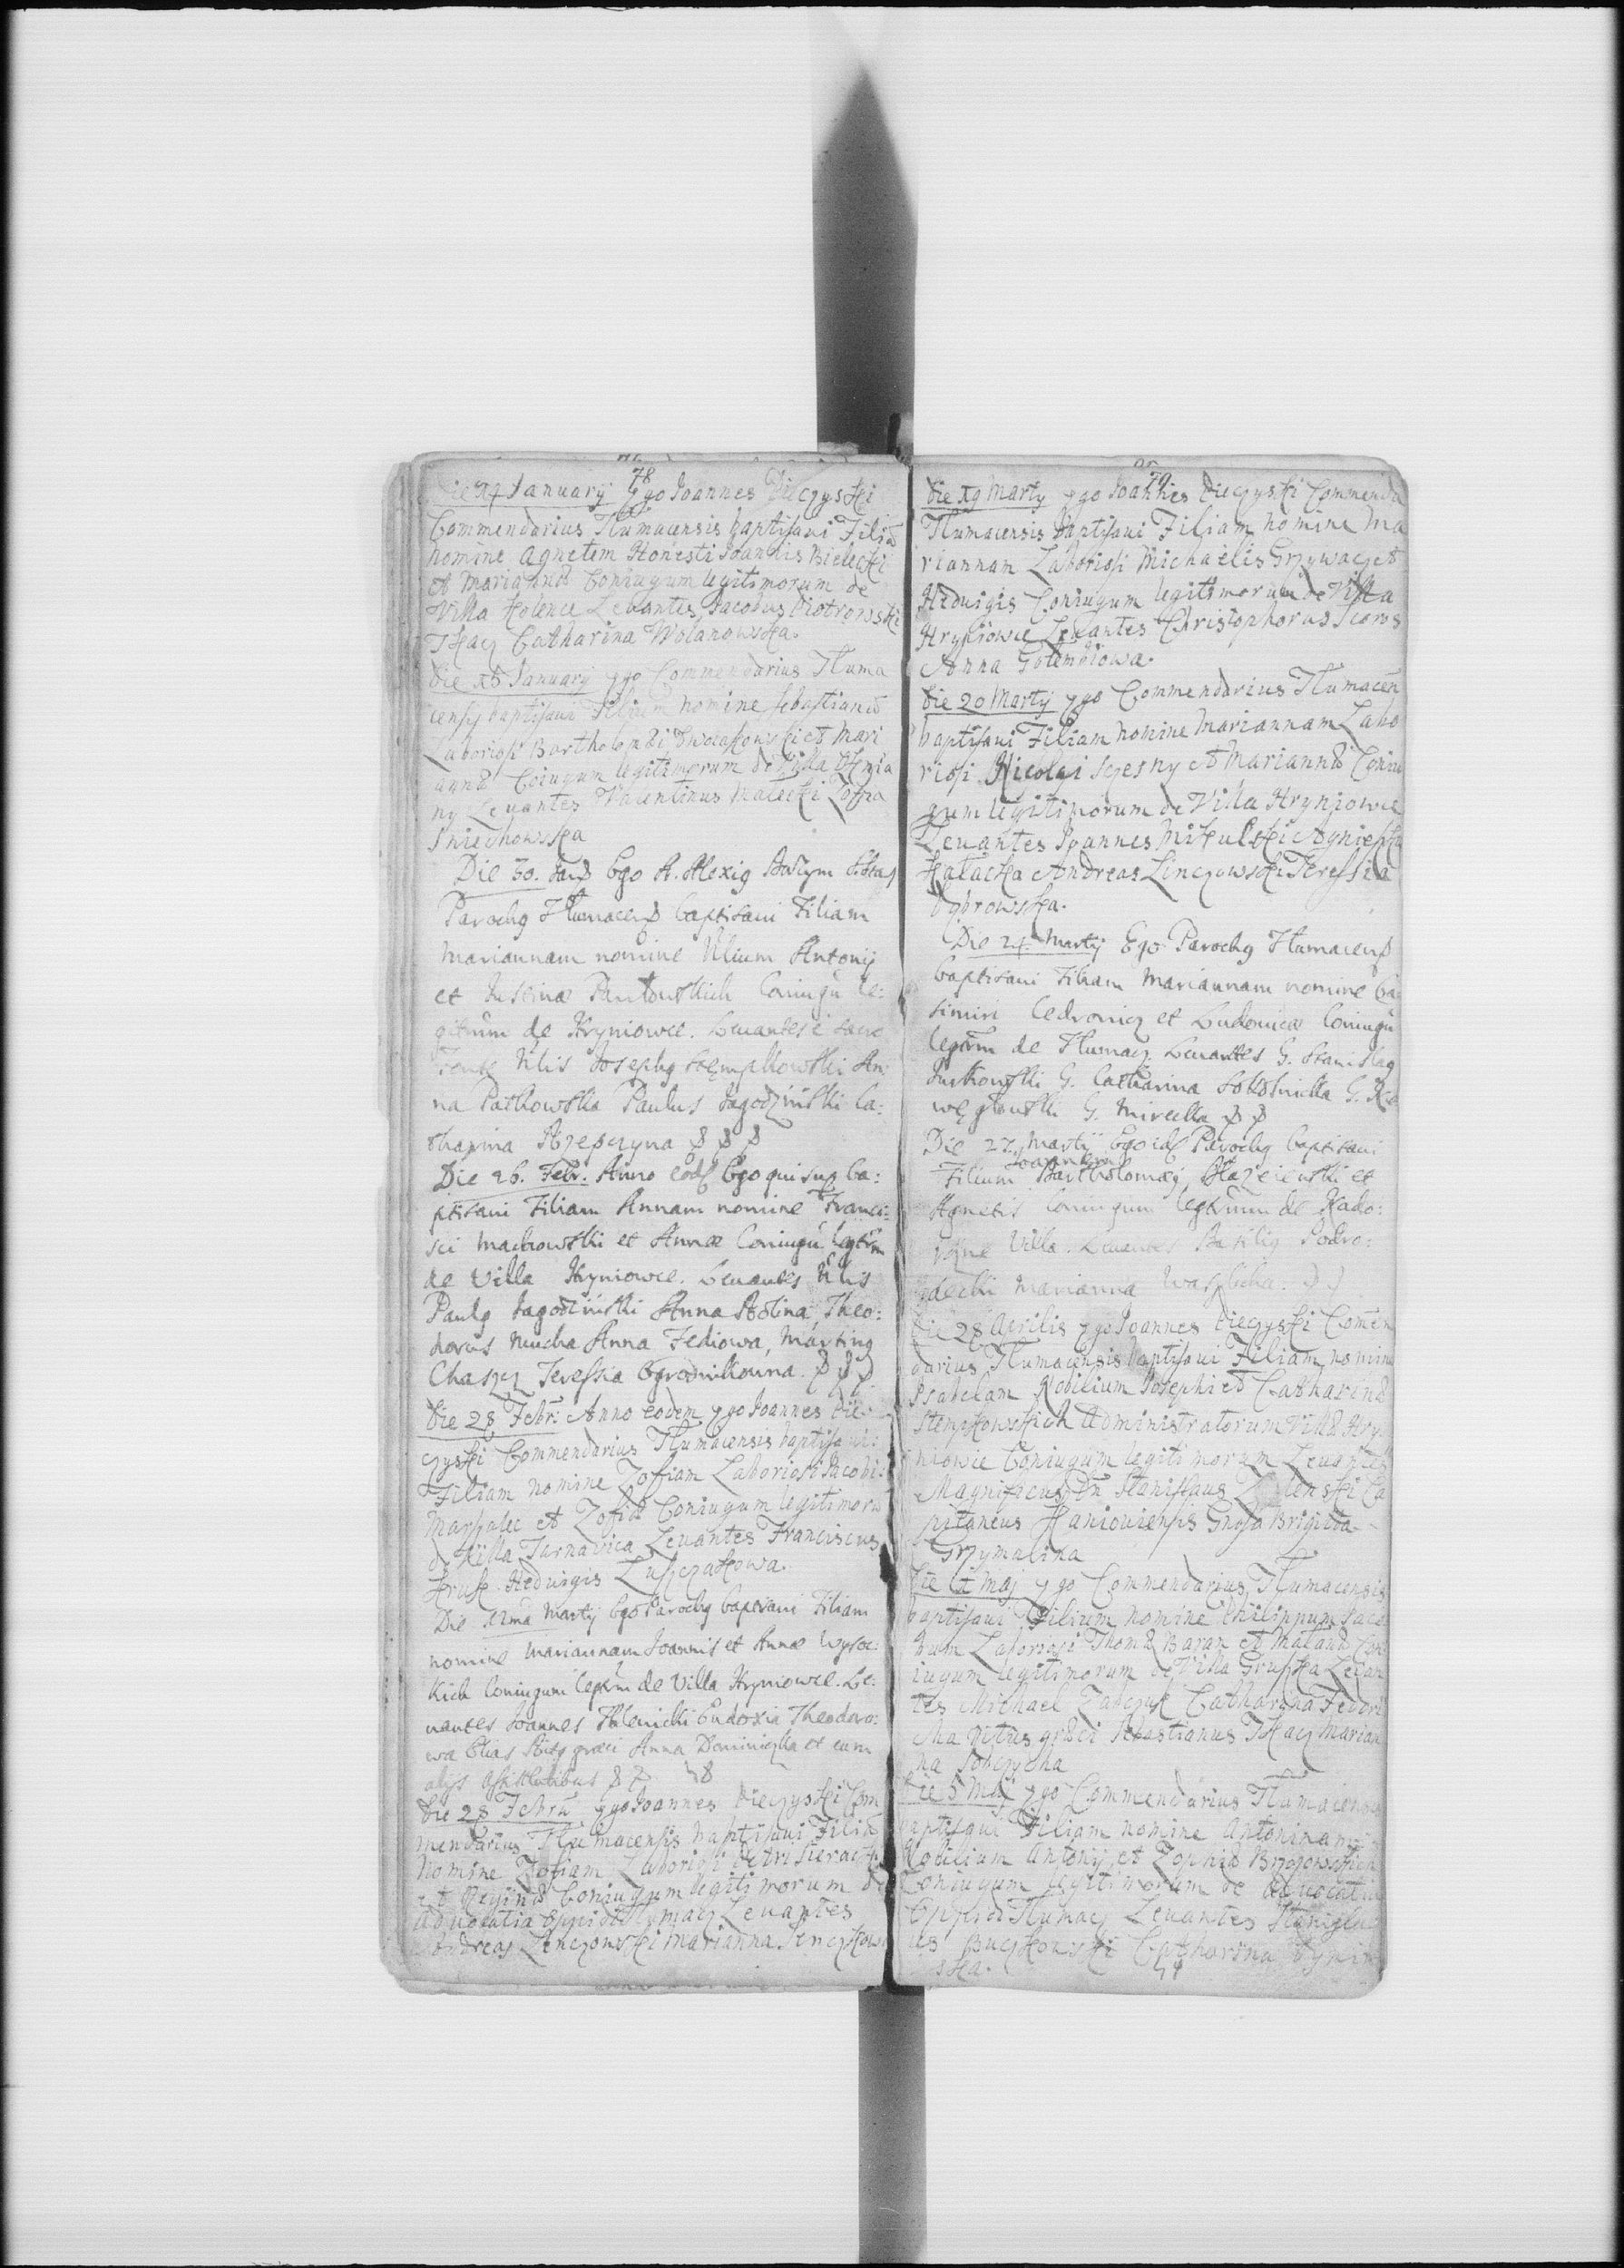 78
Die 14 January Ego Joannes Dieczyski
Commendarius Tlumacensis baptisaui Filiã
nomine Agnetem Honesti Joannis Bielecki
et Mariannæ Coniugum legitimorum de
Villa Kolence Leuantes Jacobus Piotrowski
Tkacz Catharina Wolanowska.
Die 15 January Ego Commendarius Tluma
censis baptisaui Filium nomine Sebastianũ
Laboriosi Bartholomæi et Mari
annæ Coiugum legitimorum de Villa
ny Leuantes Valentinus Malecki Zofia
Sniechowska
Die 30. Ego A.
Parochg Tlumacens baptisaui Filiam
Mariannam nomine Nlium Antonij
et Justinæ Coniugũ le:
gitim̃ de Hryniowce. Leuantes è sacro
Fonte Nlis Josephg Stęmpkowski An:
na Paskowska Paulus Jagodziński Ca:
tharina Rzepczyna
Die 26. Febr. Anno eod Ego qui sup ba:
ptisaui Filiam Annam nomine Franci:
sci Machowski et Annæ Coniugũ legitim̃
de Villa Hryniowce. Leuantes Nlis
Paulg Jagodziński Anna Theo:
dorus Mucha Anna Fediowa, Marting
Chaszcz Teressia Ogrodnikowna.
Die 28 Febr: Anno eodem Ego Joannes Die
czyski Commendarius Tlumacensis baptisaui:
Filiam nomine Zofiam Laboriosi Jacobi:
Marszalec et Zofiæ Coniugum legitimorũ
de Villa Tarnavica Leuantes Franciscus
Kruk Heduigis Luszczakowa.
Die 12ma Martij Ego Parochg baptisaui Filiam
nomine Mariannam Joannis et Annæ Wysoc:
kich Coniugum legitim̃ de Villa Hryniowce. Le:
uantes Joannes Eudoxia Theodoro:
wa Elias Ritg græci Anna Dominiczka et cum
alijs assistentibus
Die 28 Febrũ Ego Joannes Dieczyski Com
mendarius Tlumacensis baptisaui Filiã
Nomine Zofiam Laboriosi Petri
et Reginæ Coniugum legitimorum de
Aduocatia Oppidi Tlumacz Leuantes
Andreas Lenczowski Marianna
79
Die 19 Marty Ego Joannes Dieczyski Commenda
Tlumacensis baptisaui Filiam Nomine Ma
riannam Laboriosi Michaelis Grzywacz et
Heduigis Coniugum legitimorum de Villa
Hryniowce Leuantes Christophorus
Anna Golembiowa.
Die 20 Martij Ego Commendarius Tlumacen
baptisaui Filiam Nomine Mariannam Labo
riosi Nicolai Sczesny et Mariannæ Coniu
gum legitimorum de Villa Hryniowce
Leuantes Joannes Mikulski Agnieszka
Kałacka Andreas Linczowski Teressia
Dybrowska.
Die 24. Martij Ego Parochg Tlumacens
baptisaui Filiam Mariannam nomine Ca
simiri Cedrowicz et Ludouicæ Coniugũ
legitim̃ de Tlumacz. Leuantes G. Stanislag
G. Catharina G.
G.
Die 27. Martij Ego id Parochg baptisaui
Joannem
Filium Bartholomæj et
Agnetis Coniugum legitimũ de
Villa. Leuantes Basilig Podro:
Marianna
Die 28 Aprilis Ego Joannes Dieczyski Comen
darius Tlumacensis baptisaui Filiam nomine
Isabelam Nobilium Josephi et Catharinæ
Stempkowskich Administratorum Villæ Hry
niowce Coniugum legitimorum Leuantes
Magnificus Dñ Stanislaus Ca
pitaneus Haniouiensis Gnosa Brigitta
Grzymalina
Die 1 Maj Ego Commendarius Tlumacensis
baptisaui Filium nomine Philippum Jaco
bum Laboriosi Thomæ Baran et Con
iugum legitimorum de Villa Gruszka Leuan
tes Michael Catharina Fedori
cha Ritus græci Sebastianus Tkacz Marian
na
Die 5 Maj Ego Commendarius Tlumacensis
baptisaui Filiam nomine Antoninam
Nobilium Antonij et Zophiæ Brzozowskich
Coniugum legitimorum de Aduocatia
Oppidi Tlumacz Leuantes Stanisla
us Buczkowski Catharina
ska.